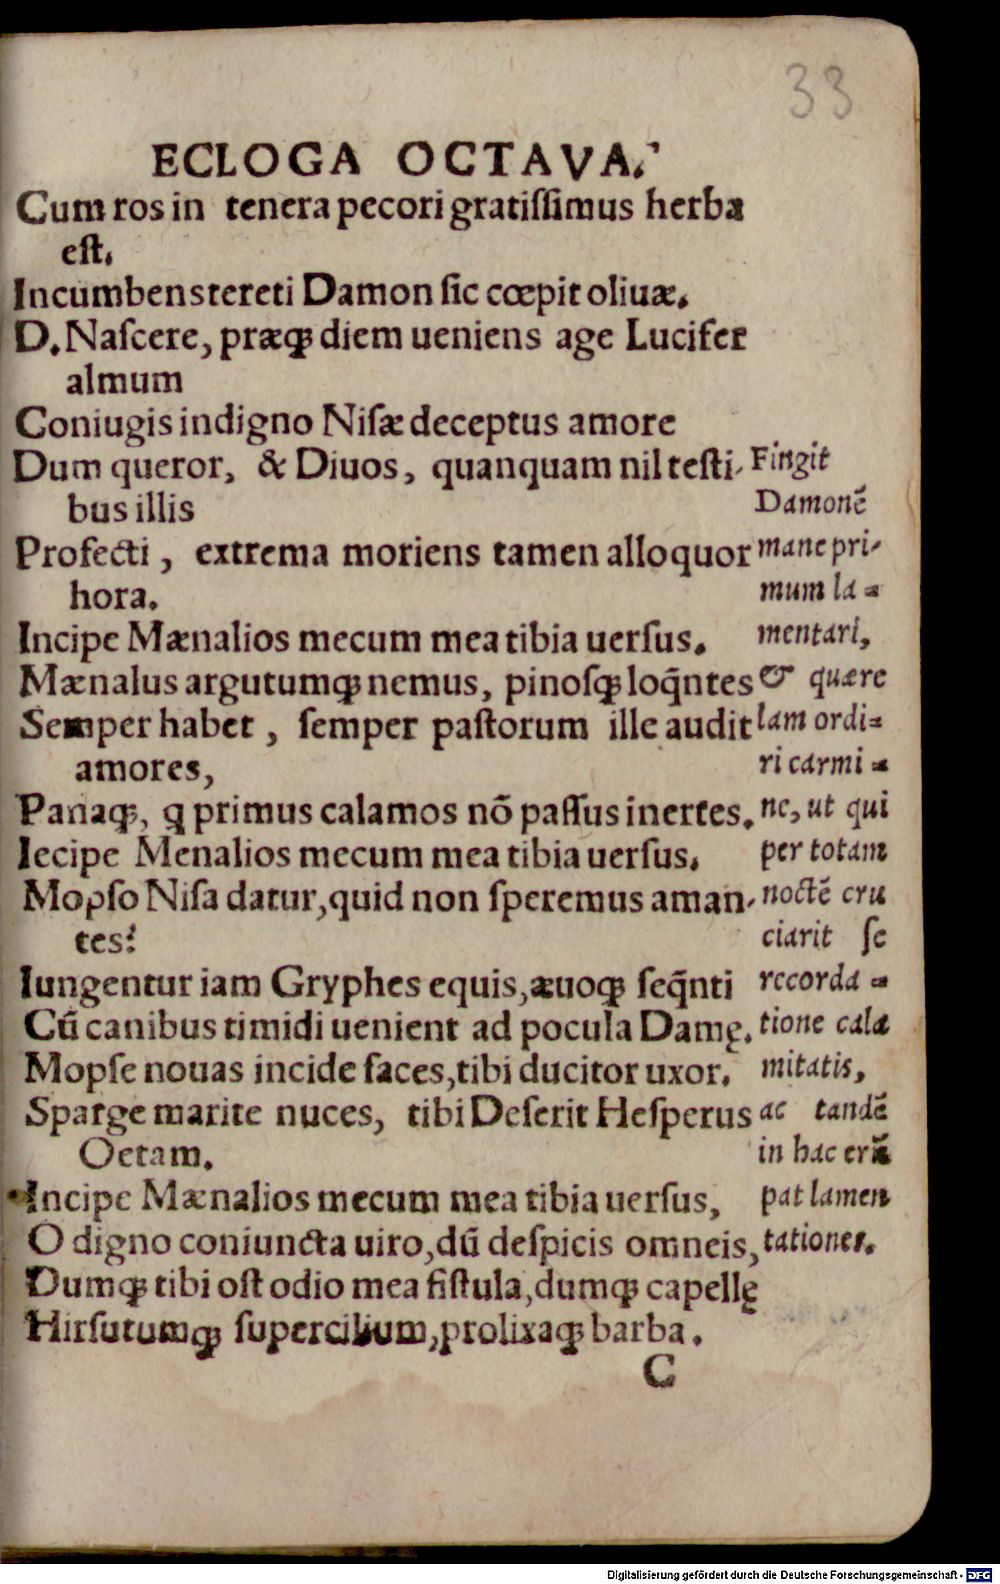 33
ECLOGA OCTAVA.
Cum ros in tenera pecori gratiſſimus herba
eſt.
Incumbens tereti Damon ſic cœpit oliuæ.
D. Naſcere, præq; diem ueniens age Lucifer
almum
Coniugis indigno Niſæ deceptus amore
Dum queror, & Diuos, quanquam nil teſti-
bus illis
Profecti, extrema moriens tamen alloquor
hora.
Incipe Mænalios mecum mea tibia uerſus.
Mænalus argutumq; nemus, pinoſq; loq̃ntes
Semper habet, ſemper paſtorum ille audit
amores,
Panaq;, q primus calamos nō paſſus inertes.
Iecipe Menalios mecum mea tibia uerſus.
Mopſo Niſa datur, quid non ſperemus aman-
tes?
Iungentur iam Gryphes equis, æuoq; ſeq̃nti
Cū canibus timidi uenient ad pocula Damę.
Mopſe nouas incide faces, tibi ducitor uxor.
Sparge marite nuces, tibi Deſerit Heſperus
Oetam.
Incipe Mænalios mecum mea tibia uerſus,
O digno coniuncta uiro, dū deſpicis omneis,
Dumq; tibi oſt odio mea fiſtula, dumq; capellę
Hirſutumq; ſupercilium, prolixaq; barba.
C
Fingit
Damonē
mane pri-
mum la-
mentari,
& quære
lam ordi-
ri carmi-
ne, ut qui
per totam
noctē cru
ciarit ſe
recorda-
tione cala
mitatis,
ac tandē
in hac erū
pat lamen
tationes.
Digitalisierung gefördert durch die Deutsche Forschungsgemeinschaft - DFG